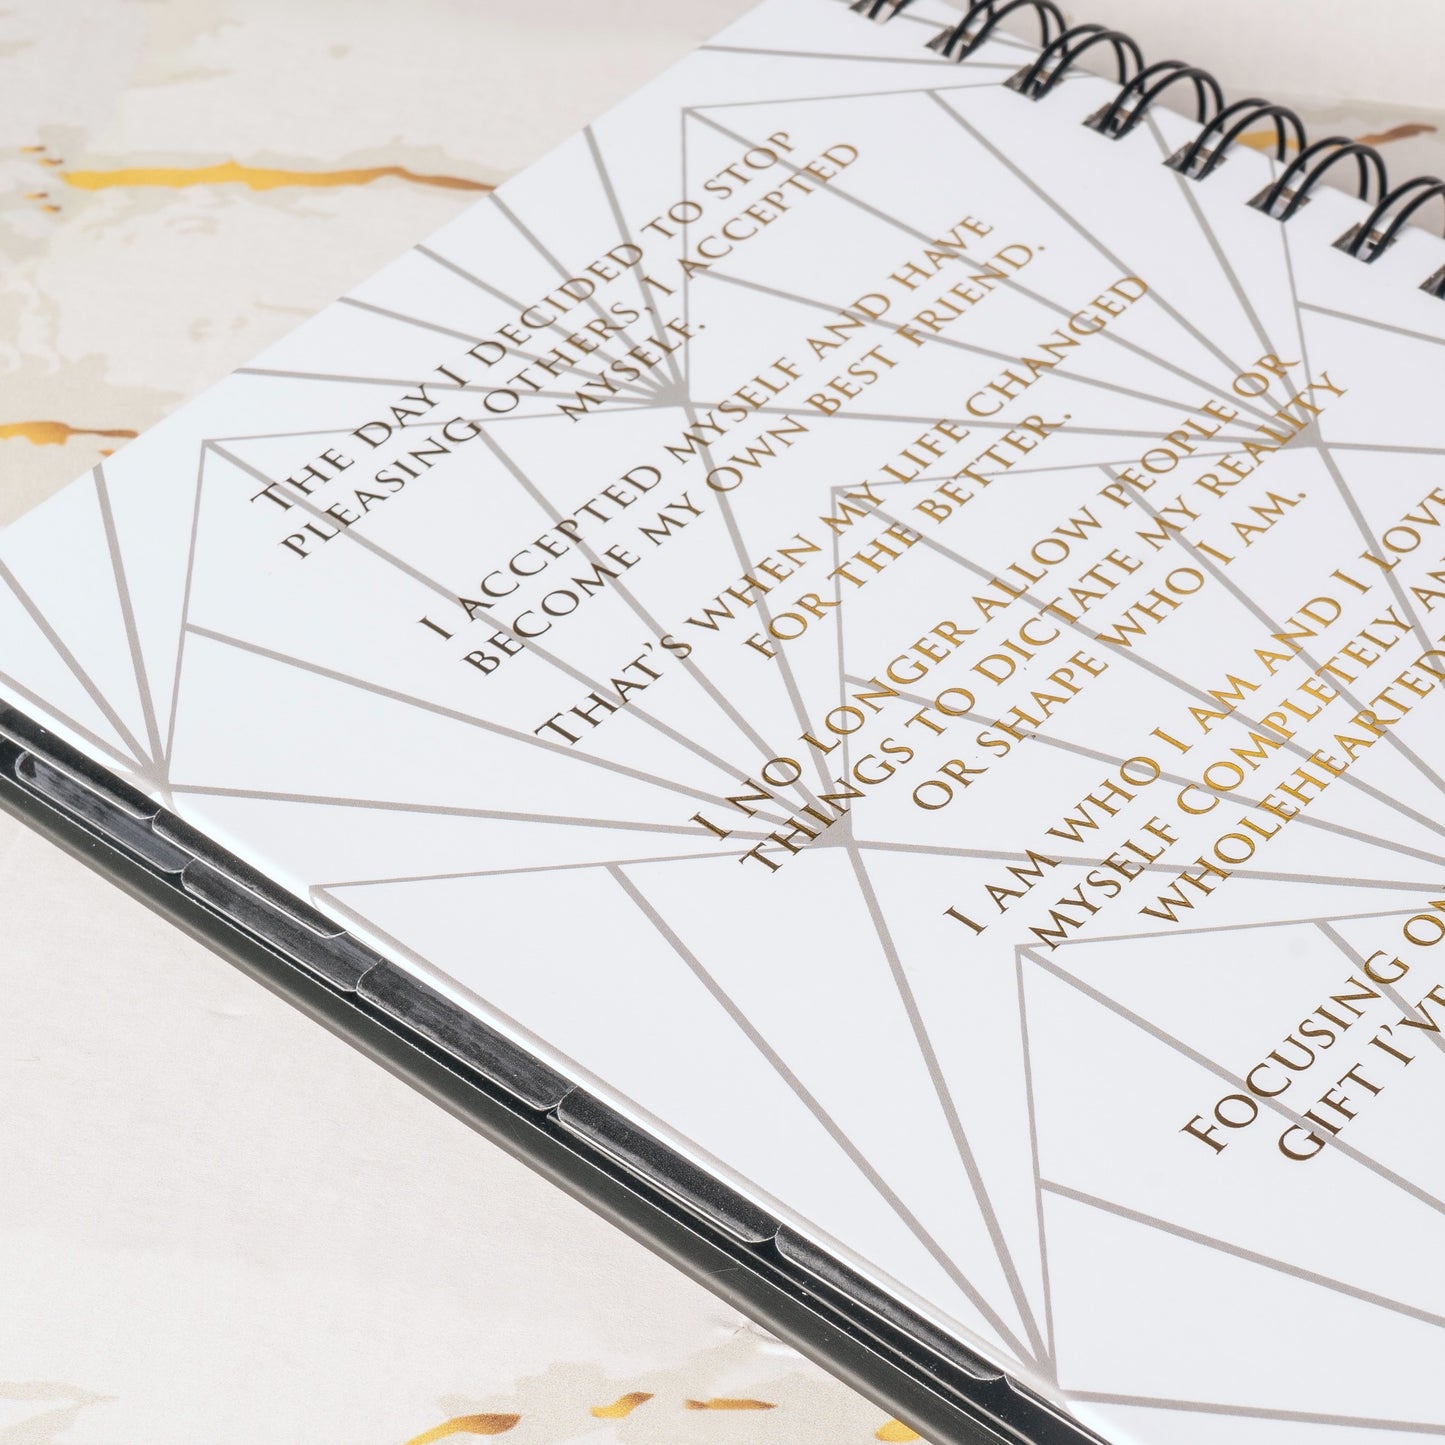 THE DAY I DECIDED TO STOP
PLEASING OTHERS, I ACCEPTED
MYSELF.
I ACCEPTED MYSELF AND HAVE
BECOME MY OWN BEST FRIEND.
THAT'S WHEN MY LIFE CHANGED
FOR THE BETTER.
I NO LONGER ALLOW PEOPLE OR
THINGS TO DICTATE MY REALITY
OR SHAPE WHO I AM.
I AM WHO I AM AND I LOVE
MYSELF COMPLETELY AN
WHOLEHEARTED
FOCUSING ON
GIFT I'VE